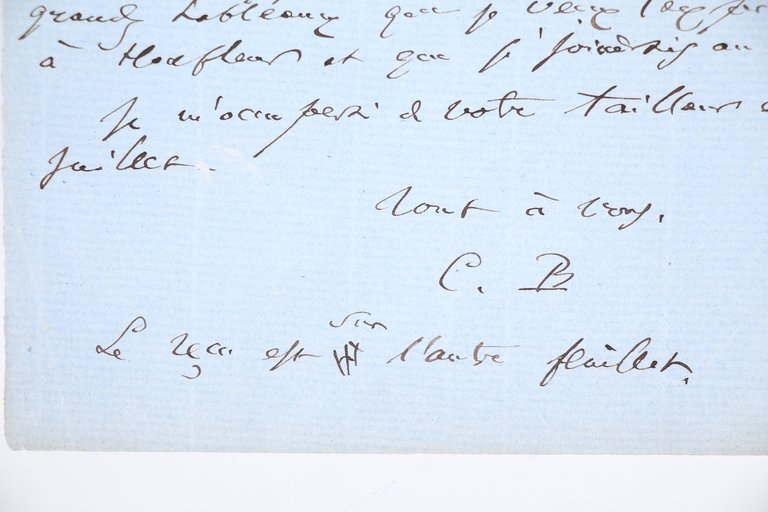 grands tableaux que je veux
à Honfleur et que je joindrais au
Je m'occuperai de votre tailleur
juillet.
Tout à vous.
C. B
Le reçu est sur l'autre feuillet.